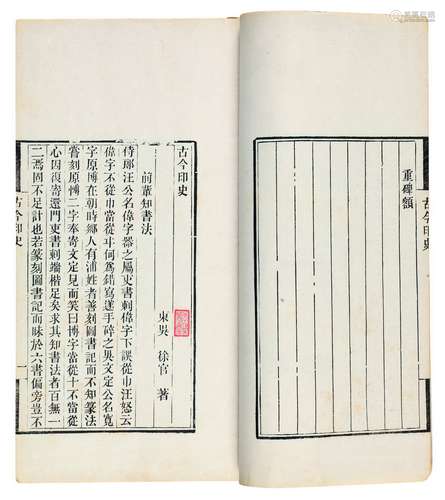 重碑額
古今印史
古今印史
前輩知書法
東吳 徐官 著
侍郎汪公名偉字器之屬吏書刺偉字下誤從巾汪怒云
偉字不從巾當從㐄何爲錯寫遂手碎之吳文定公名寬
字原博在朝時鄉人有浦姓者善刻圖書記而不知篆法
嘗刻原愽二字奉寄文定見而笑曰博字當從十不當從
心因復寄還門吏書刺端楷足矣求其知書法者百無一
二焉固不足計也若篆刻圖書記而昧於六書偏旁豈不
古今印史
一